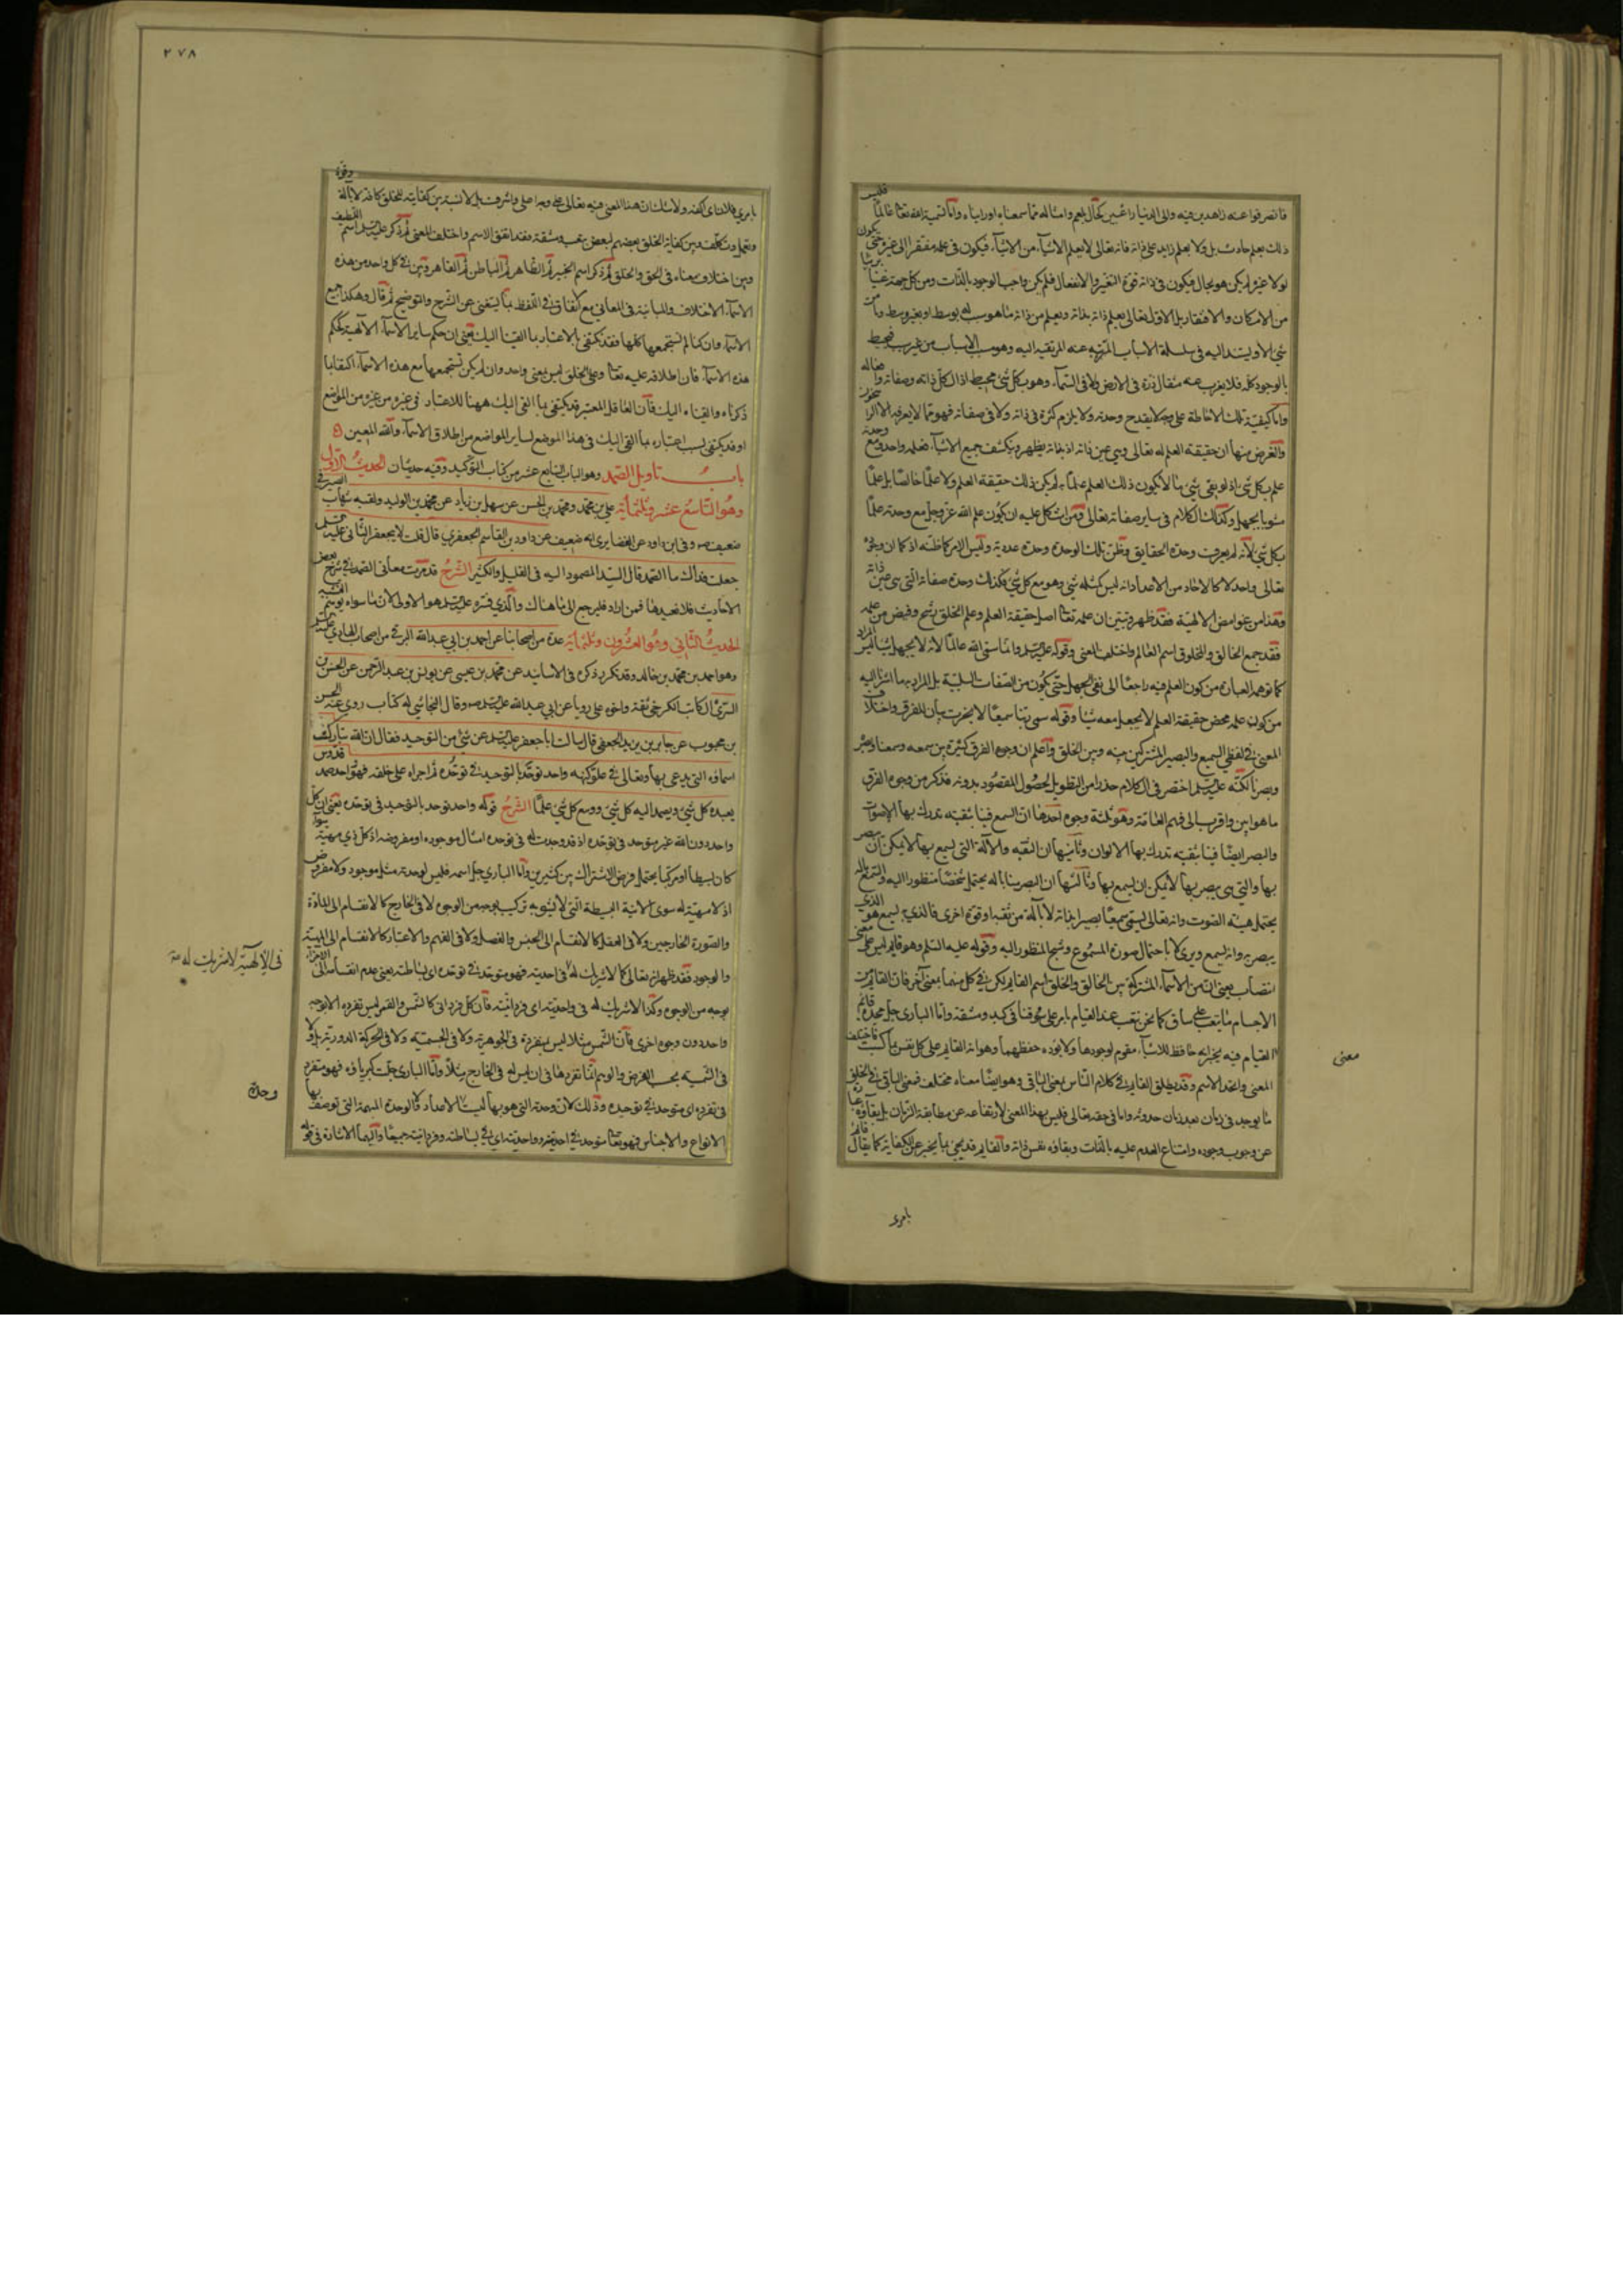 فانصرفوا عنه زاهدين فيه والى الدنيا راغبين بحال بلعم وامثاله مما سمعناه اورايناه واما تسمية الله تعالى عالما فليس
ذلك بعلم حادث بل ولا بعلم زايد على ذاته فانه تعالى لا يعلم الاشياء من الاشياء فيكون في علمه مفتقرا الى غيره حتى يكون
لولا غيره لم يكن هو بحال فيكون في ذاته قوة التغير والانفعال فلم يكن واجب الوجود بالذات ومن كل جهة غنيا بريئا
من الامكان والافتقار بل الاول تعالى يعلم ذاته بذاته ويعلم من ذاته ما هو سبب له بوسط او بغير وسط وما من
شيء الا ويستند اليه في سلسلة الاسباب المنتهية عنه المرتقية اليه وهو مسبب الاسباب من غير سبب فمحيط
بالوجود كله فلا يعزب عنه مثقال ذرة في الارض ولا في السماء وهو بكل شيء محيط اذ الكل ذاته وصفاته وافعاله
واما كيفية تلك الاحاطة على وجه لا يقدح وحدته ولا يلزم كثرة في ذاته ولا في صفاته فهو مما لا يعرفه الا الراسخون
والغرض منها ان حقيقة العلم له تعالى وهي عين ذاته اذ بذاته يظهر وينكشف جميع الاشياء فعلمه واحد ومع وحدته
علم بكل شيء اذ لو بقى شيء ما لا يكون ذلك العلم علما به لم يكن ذلك حقيقة العلم ولا علما خالصا بل علما
مشوبا بجهل وكذلك الكلام في ساير صفاته تعالى ومن اشكل عليه ان يكون علم الله عز وجل مع وحدته علما
بكل شيء لانه لم يعرف وحدة الحقايق وظن تلك الوحدة وحدة عددية وليس الامر كما ظنه اذ كما ان وجوده
تعالى واحد لا كالاحاد من الاعداد انه ليس كمثله شيء وهو مع كل شيء فكذلك وحدة صفاته التي هي عين ذاته
وهذا من غوامض الالهية فقد ظهر وتبين ان علمه تعالى اصل حقيقة العلم وعلم الخلق رشح وفيض من علمه
فقد جمع الخالق والمخلوق اسم العالم واختلف المعنى وقوله عليه السلم وانما سمى الله عالما لانه لا يجهل شيئا ليس المراد
كما توهمه العبارة من كون العلم فيه راجعا الى نفى الجهل حتى يكون من الصفات السلبية بل المراد به ما اشرنا اليه
من كون علمه محض حقيقة العلم لا يجهل معه شيئا وقوله سمى ربنا سميعا لا بخرت بيان للفرق واختلاف
المعنى في لفظي السميع والبصير المشتركين بينه وبين الخلق واعلم ان وجوه الفرق كثيرة بين سمعه وسمعنا وبصره
وبصرنا لكنه عليه السلم اختصر في الكلام حذرا من التطويل لحصول المقصود بدونه فذكر من وجوه الفرق
ما هو ابين واقرب الى فهم العامة وهو ثلثة وجوه احدها ان السمع فينا بثقبة تدرك بها الاصوات
والبصر ايضا فينا بثقبة تدرك بها الالوان وثانيها ان الثقبة والآلة التي يسمع بها لا يمكن ان يبصر
بها والتي هي يبصر بها لا يمكن ان يسمع بها وثالثها ان البصر منا بآلة يحتمل شخصا منظورا اليه والسمع بآلة
يحتمل هيئة الصوت وانه تعالى ليسمى سميعا بصيرا بذاته لا بآلة من ثقبة او قوة اخرى فالذي يسمع هو الذي
يبصر به وانه يسمع ويرى لا باحتمال صورة المسموع وشبح المنظور اليه وقوله عليه السلم وهو قايم ليس على معنى
انتصاب يعنى ان من الاسماء المشتركة بين الخالق والخلق اسم القايم لكن في كل منهما بمعنى آخر فان القايم من
الاجسام ما ينتصب على ساق كما نحن ننتصب عند القيام بامر على سوقنا في كبد ومشقة واما الباري جل مجده قايم
القيام فيه يخبر انه حافظ للاشياء مقوم لوجودها ولا يؤده حفظهما وهو انه القايم على كل نفس بما كسبت فاختلف
المعنى واتحد الاسم وقد يطلق القايم في كلام الناس بمعنى الباقي وهو ايضا معناه مختلف فمعنى الباقي في الخلق
ما يوجد في زمان بعد زمان حدوثه واما في حقه تعالى فليس بهذا المعنى لارتفاعه عن مطابقة الزمان بل بقاؤه عبارة
عن وجوب وجوده وامتناع العدم عليه بالذات وبقاؤه نفس ذاته والقايم قد يجيء بما يخبر عن الكفاية كما يقال قائم
معنى
بامرى
٢٧٨
بامرى فلان اى اكفه ولا شك ان هذا المعنى فيه تعالى على وجه اعلى واشرف بل لا نسبة بين كفايته للخلق كافة لا بآلة وقوة
وتعمل وتكلف وبين كفاية الخلق بعضهم لبعض بتعب ومشقة فقد اتفق الاسم واختلف المعنى ثم ذكر عليه السلم اسم اللطيف
وبين اختلاف معناه في الحق والخلق ثم ذكر اسم الخبير ثم الظاهر ثم الباطن ثم القاهر وبين في كل واحد من هذه
الاسماء الاختلاف والمباينة في المعاني مع اتفاق في اللفظ بما يستغنى عن الشرح والتوضيح ثم قال وهكذا جميع
الاسماء وان كنا لم نستجمعها كلها فقد يكتفى بالاعتبار بما القينا اليك يعنى ان حكم ساير الاسماء الالهية كحكم
هذه الاسماء فان اطلاقه عليه تعالى وعلى الخلق ليس بمعنى واحد وان لم يكن نستجمعها مع هذه الاسماء اكتفاء بما
ذكرناه والقيناه اليك فان العاقل المعتبر قد يكتفى بما القى اليك ههنا للاعتبار في غيره من غيره من المواضع
او قد يكتفى لسبب اعتباره بما القى اليك في هذا الموضع لساير المواضع من اطلاق الاسماء والله المعين
باب تاويل الصمد وهو الباب السابع عشر من كتاب التوحيد وفيه حديثان الحديث الاول
وهو التاسع عشر وثلثمائة علي بن محمد ومحمد بن الحسن عن سهل بن زياد عن محمد بن الوليد ولقبه شباب الصيرفي
ضعيف صه وفي ابن داود عن الغضايرى انه ضعيف عن داود بن القاسم الجعفري قال قلت لابي جعفر الثاني عليه السلم
جعلت فداك ما الصمد قال السيد المصمود اليه في القليل والكثير الشرح قد مرت معاني الصمد في شرح بعض
الاحاديث فلا نعيدها فمن اراد فليرجع الى ما هناك والذي فسره عليه السلم هو الاولى لان ما سواه يوهم التشبيه
الحديث الثاني وهو العشرون وثلثمائة عدة من اصحابنا عن احمد بن ابي عبدالله البرقي من اصحاب الهادي عليه السلم
وهو احمد بن محمد بن خالد وقد تكرر ذكره في الاسانيد عن محمد بن عيسى عن يونس بن عبد الرحمن عن الحسن بن
السري الكاتب الكرخي ثقة واخوه علي رويا عن ابي عبد الله عليه السلم صه وقال النجاشي له كتاب روى عنه الحسن
بن محبوب عن جابر بن يزيد الجعفي قال سالت ابا جعفر عليه السلم عن شيء من التوحيد فقال ان الله تباركت
اسماؤه التي يدعى بها وتعالى في علو كنهه واحد توحد بالتوحيد في توحده ثم اجراه على خلقه فهو واحد صمد قدوس
يعبده كل شيء ويصمد اليه كل شيء ووسع كل شيء علما الشرح قوله واحد توحد بالتوحيد في توحده يعنى ان كل
واحد دون الله غير متوحد في توحده اذ قد وجدت له في توحده امثال موجودة او مفروضة اذ كل ذي مهية سواء
كان بسيطا او مركبا يحتمل فرض الاشتراك بين كثيرين واما الباري جل اسمه فليس لوحدته مثل موجود ولا مفروض
اذ لا مهية له سوى الانية البسيطة التي لا يشوبه تركيب بوجه من الوجوه لا في الخارج كالانقسام الى المادة
والصورة الخارجيتين ولا في العقل كالانقسام الى الجنس والفصل ولا في الفهم والاعتبار كالانقسام الى المهية
والوجود فقد ظهر انه تعالى كما لا شريك له في احديته فهو متوحد في توحده اى بساطته يعنى عدم انقسامه الى الاجزاء
بوجه من الوجوه وكذا لا شريك له في واحديته اى فردانيته فان كل فرداني كالشمس والقمر ليس تفرده الا بوجه
واحد دون وجوه اخرى فان الشمس مثلا ليس بمنفردة في الجوهرية ولا في الجسمية ولا في الحركة الدورية بل ولا
في الشمسية بحسب الفرض والوهم انما تفردها في ان ليس له في الخارج مثلا واما الباري جلت كبرياؤه فهو متفرد
في تفرده اى متوحد في توحيده وذلك لان وحدته التي هو بها ليست الاعداد كالوحدة المبهمة التي توصف بها
الانواع والاجناس فهو تعالى متوحد في احديته وواحديته اى في بساطته وفردانيته جميعا واليهما الاشارة في قوله
في الالهية لا شريك له صح
وحدة